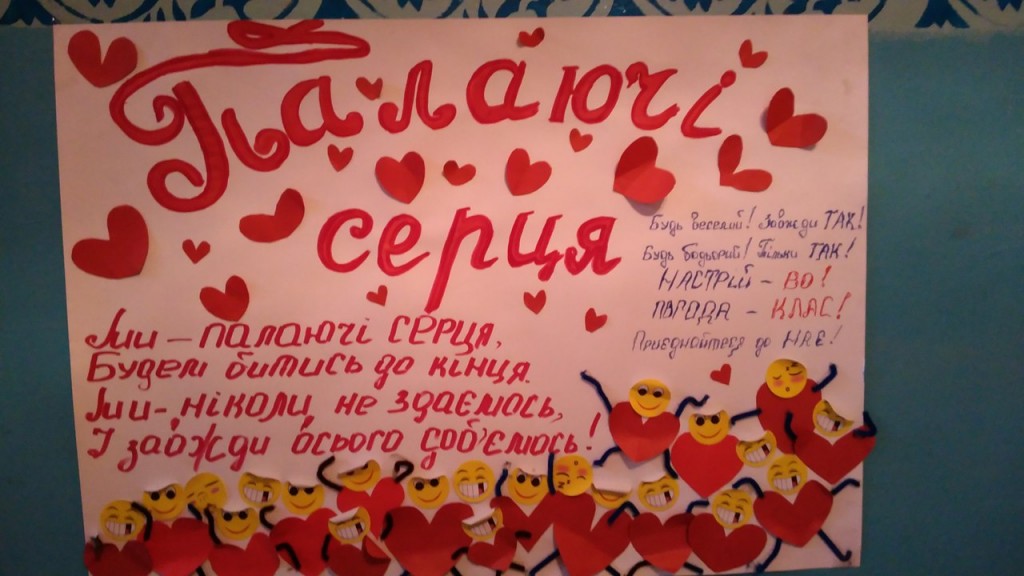 Палаючі
серця
Будь веселий! Завжди ТАК!
Будь бадьорий! Тільки ТАК!
НАСТРІЙ – ВО!
ПОГОДА – КЛАС!
Приєднойтеся до НАС!
Ми – палаючі СЕРЦЯ,
Будем битись до кінця.
Ми-ніколи не здаємось,
І завжди всього доб'ємось!